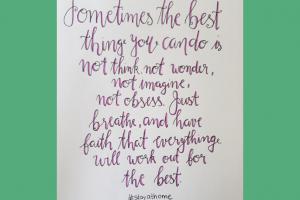 Sometimes the best
thing you can do is
not think, not wonder,
not imagine,
not obsess. Just
breathe, and have
faith that everything
will work out for
the best.
#stayathome